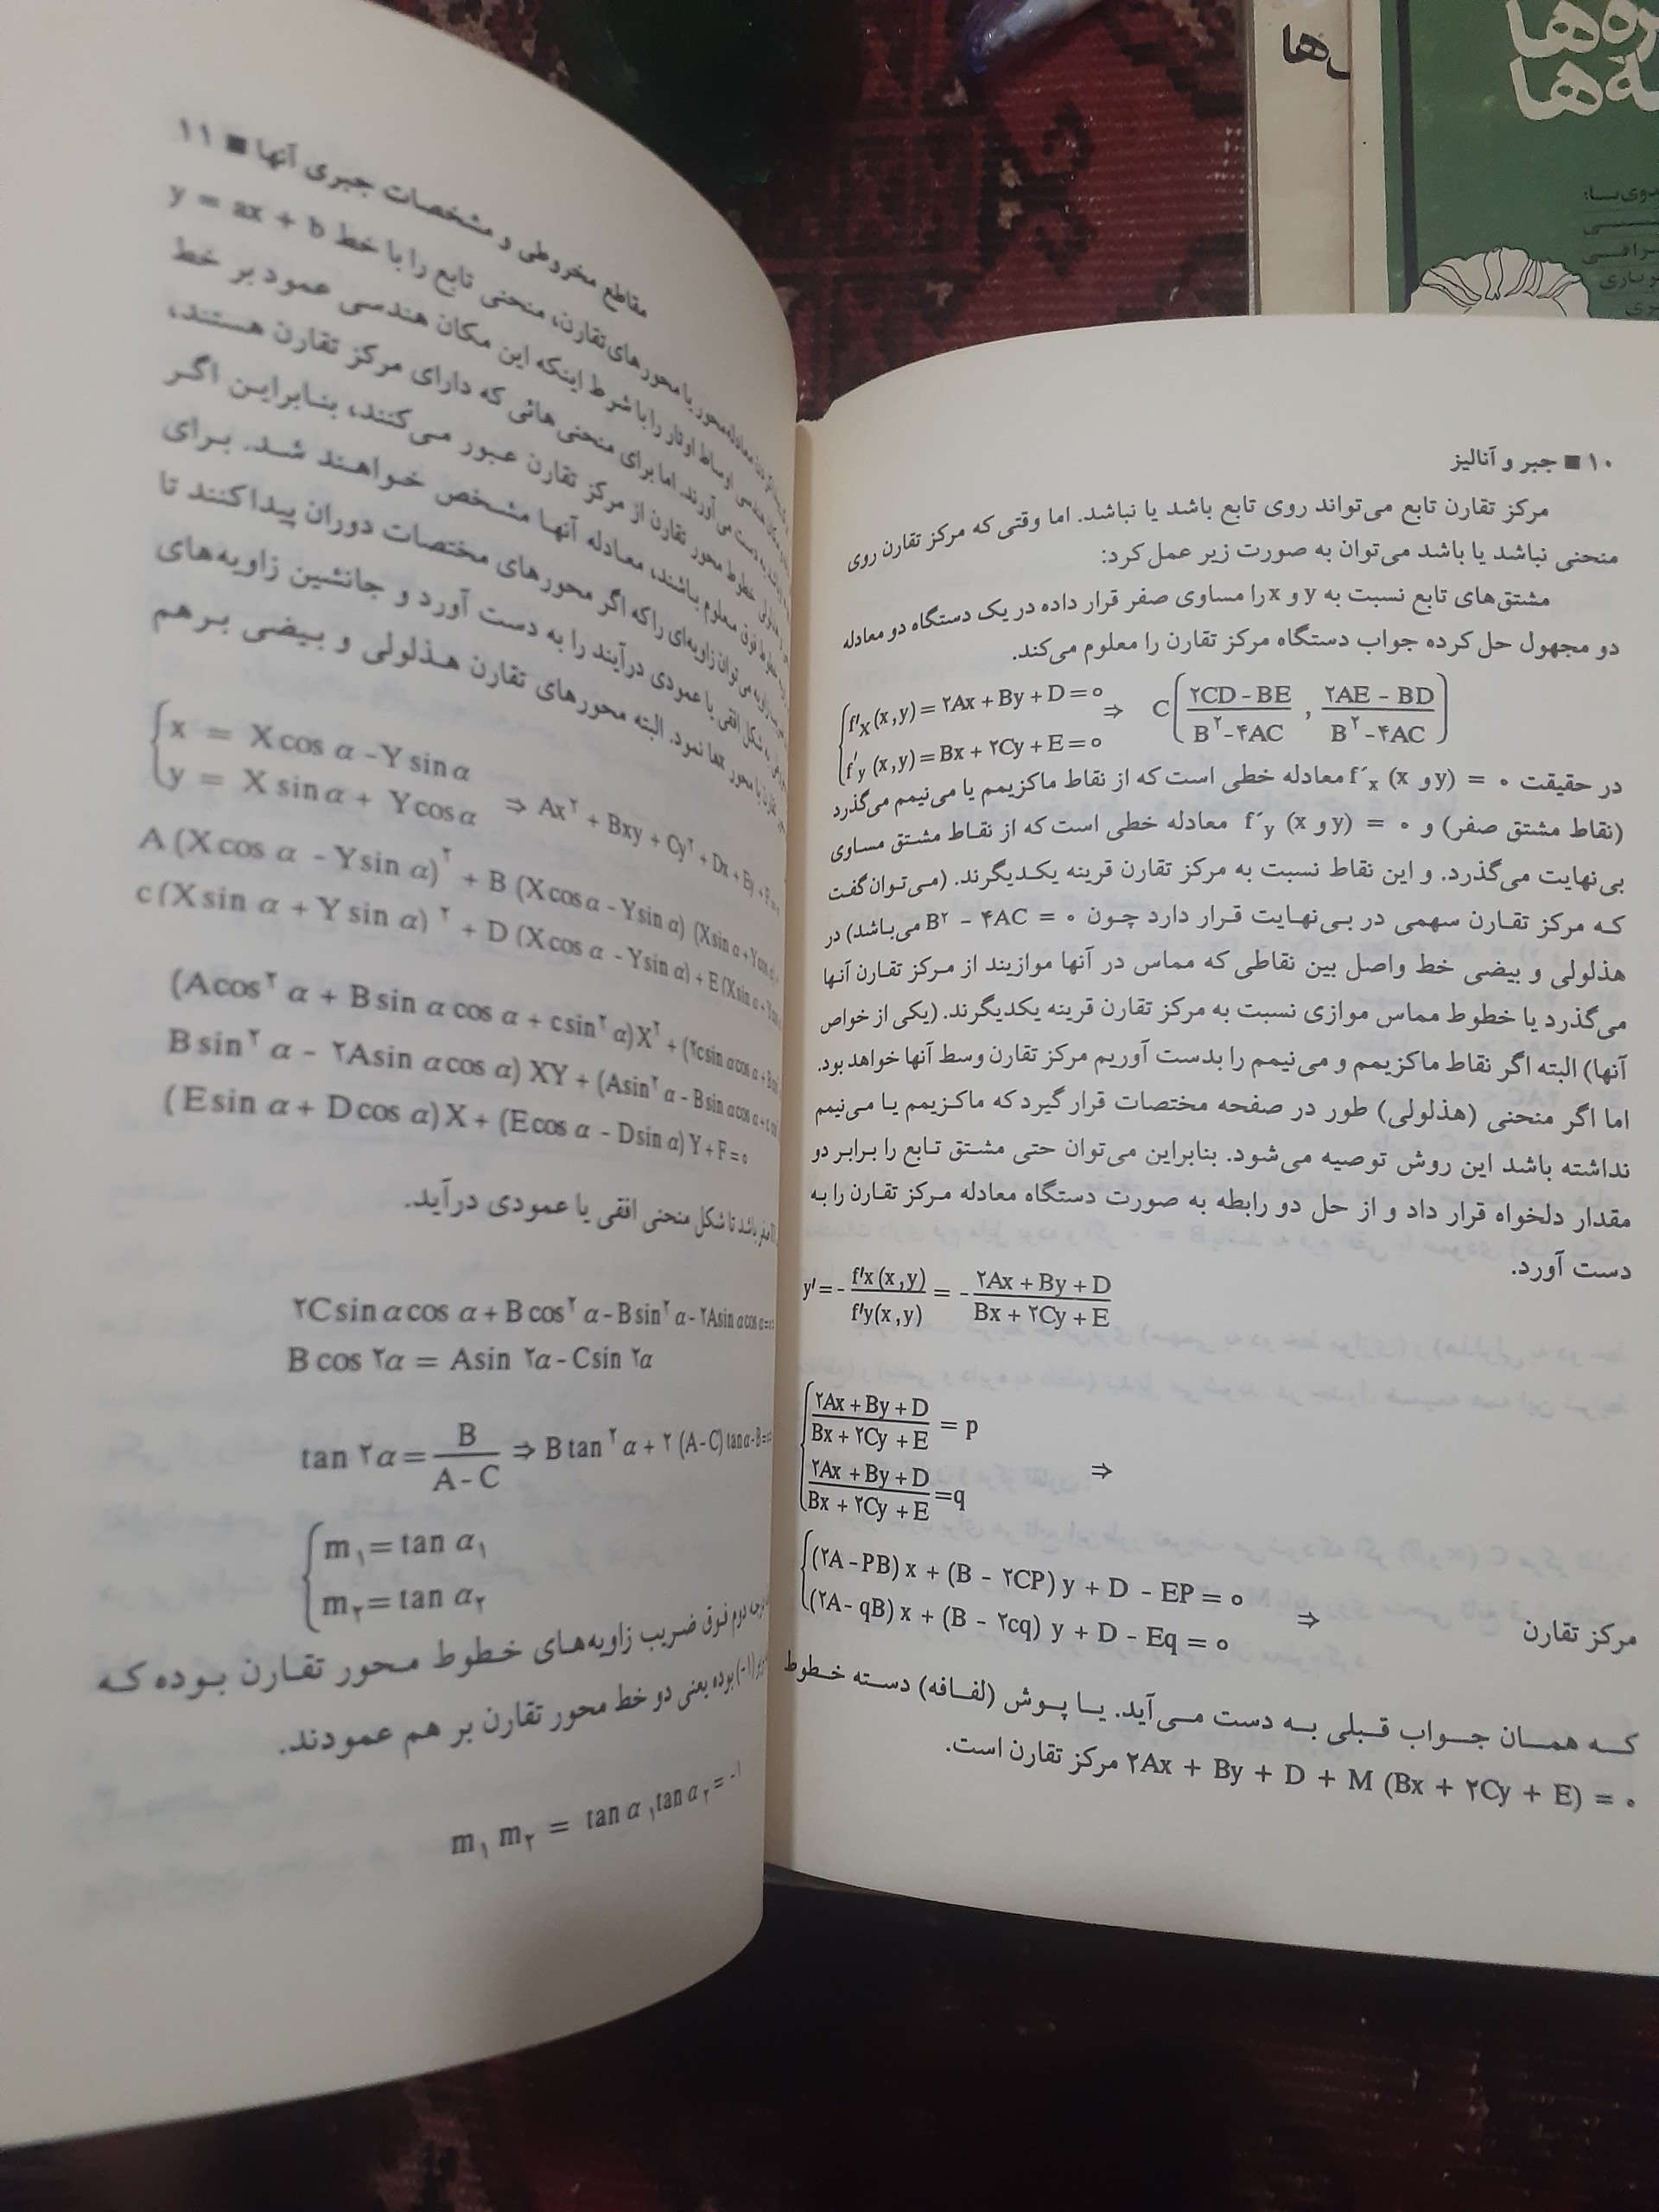 ۱۰ ■ جبر و آنالیز
مرکز تقارن تابع می‌تواند روی تابع باشد یا نباشد. اما وقتی که مرکز تقارن روی
منحنی نباشد یا باشد می‌توان به صورت زیر عمل کرد:
مشتق‌های تابع نسبت به y و x را مساوی صفر قرار داده در یک دستگاه دو معادله
دو مجهول حل کرده جواب دستگاه مرکز تقارن را معلوم می‌کند.
f′x (x,y) = ۲Ax + By + D = ۰
f′y (x,y) = Bx + ۲Cy + E = ۰ ⇒ C( (۲CD - BE)/(B^۲ - ۴AC) , (۲AE - BD)/(B^۲ - ۴AC) )
در حقیقت f′x (x و y) = ۰ معادله خطی است که از نقاط ماکزیمم یا می‌نیمم می‌گذرد
(نقاط مشتق صفر) و f′y (x و y) = ۰ معادله خطی است که از نقاط مشتق مساوی
بی‌نهایت می‌گذرد. و این نقاط نسبت به مرکز تقارن قرینه یکدیگرند. (می‌توان گفت
که مرکز تقارن سهمی در بی‌نهایت قرار دارد چون B^۲ - ۴AC = ۰ می‌باشد) در
هذلولی و بیضی خط واصل بین نقاطی که مماس در آنها موازیند از مرکز تقارن آنها
می‌گذرد یا خطوط مماس موازی نسبت به مرکز تقارن قرینه یکدیگرند. (یکی از خواص
آنها) البته اگر نقاط ماکزیمم و می‌نیمم را بدست آوریم مرکز تقارن وسط آنها خواهد بود.
اما اگر منحنی (هذلولی) طور در صفحه مختصات قرار گیرد که ماکزیمم یا می‌نیمم
نداشته باشد این روش توصیه می‌شود. بنابراین می‌توان حتی مشتق تابع را برابر دو
مقدار دلخواه قرار داد و از حل دو رابطه به صورت دستگاه معادله مرکز تقارن را به
دست آورد.
y′ = - f′x(x,y)/f′y(x,y) = - (۲Ax + By + D)/(Bx + ۲Cy + E)
(۲Ax + By + D)/(Bx + ۲Cy + E) = p
(۲Ax + By + D)/(Bx + ۲Cy + E) = q ⇒
(۲A - PB) x + (B - ۲CP) y + D - EP = ۰
(۲A - qB) x + (B - ۲cq) y + D - Eq = ۰ ⇒ مرکز تقارن
که همان جواب قبلی به دست می‌آید. یا پوش (لفافه) دسته خطوط
۲Ax + By + D + M (Bx + ۲Cy + E) = ۰ مرکز تقارن است.
مقاطع مخروطی و مشخصات جبری آنها ■ ۱۱
معادله محور یا محورهای تقارن، منحنی تابع را با خط y = ax + b
اوساط اوتار را با شرط اینکه این مکان هندسی عمود بر خط
به دست می‌آورند. اما برای منحنی هائی که دارای مرکز تقارن هستند،
خطوط محور تقارن از مرکز تقارن عبور می‌کنند، بنابراین اگر
خطوط فوق معلوم باشند، معادله آنها مشخص خواهند شد. برای
زاویه می‌توان زاویه‌ای را که اگر محورهای مختصات دوران پیدا کنند تا
به شکل افقی یا عمودی درآیند را به دست آورد و جانشین زاویه‌های
تقارن با محور xها نمود. البته محورهای تقارن هذلولی و بیضی برهم
x = X cos α - Y sin α
y = X sin α + Y cos α ⇒ Ax^۲ + Bxy + Cy^۲ + Dx + Ey + F = ۰
A (X cos α - Y sin α)^۲ + B (X cos α - Y sin α) (X sin α + Y cos α) +
c (X sin α + Y sin α)^۲ + D (X cos α - Y sin α) + E (X sin α +
(A cos^۲ α + B sin α cos α + c sin^۲ α) X^۲ + (۲c sin α cos α + B
B sin^۲ α - ۲A sin α cos α) XY + (A sin^۲ α - B sin α cos α + c
(E sin α + D cos α) X + (E cos α - D sin α) Y + F = ۰
صفر باشد تا شکل منحنی افقی یا عمودی درآید.
۲C sin α cos α + B cos^۲ α - B sin^۲ α - ۲A sin α cos α = ۰
B cos ۲α = A sin ۲α - C sin ۲α
tan ۲α = B/(A - C) ⇒ B tan^۲ α + ۲ (A - C) tan α - B = ۰
m۱ = tan α۱
m۲ = tan α۲
درجه دوم فوق ضریب زاویه‌های خطوط محور تقارن بوده که
(-۱) بوده یعنی دو خط محور تقارن بر هم عمودند.
m۱ m۲ = tan α۱ tan α۲ = -۱